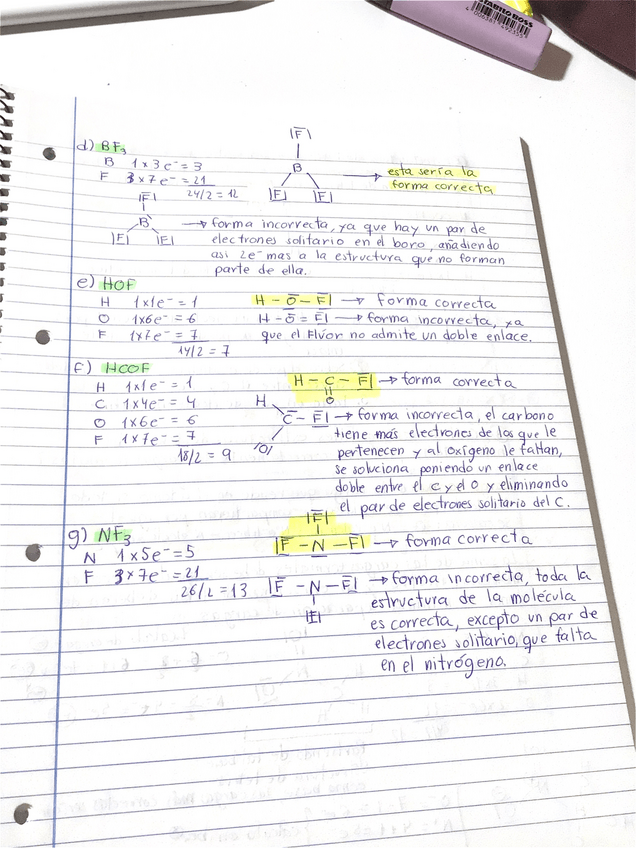 STABILO BOSS
4 006381 492355
d) BF3
B 1x3e⁻=3
F 3x7e⁻=21
24/2=12
|F|
B
|F| |F|
→ esta sería la
forma correcta
|F|
B
|F| |F|
→ forma incorrecta, ya que hay un par de
electrones solitario en el boro, añadiendo
asi 2e⁻ mas a la estructura que no forman
parte de ella.
e) HOF
H 1x1e⁻=1
O 1x6e⁻=6
F 1x7e⁻=7
14/2=7
H-O-F| → forma correcta
H-O=F| → forma incorrecta, ya
que el Flúor no admite un doble enlace.
f) HCOF
H 1x1e⁻=1
C 1x4e⁻=4
O 1x6e⁻=6
F 1x7e⁻=7
18/2=9
H-C-F| → forma correcta
O
H
C-F| → forma incorrecta, el carbono
|O|
tiene más electrones de los que le
pertenecen y al oxígeno le faltan,
se soluciona poniendo un enlace
doble entre el C y el O y eliminando
el par de electrones solitario del C.
g) NF3
N 1x5e⁻=5
F 3x7e⁻=21
26/2=13
|F|
|F-N-F| → forma correcta
|F-N-F| → forma incorrecta, toda la
|F|
estructura de la molécula
es correcta, excepto un par de
electrones solitario, que falta
en el nitrógeno.